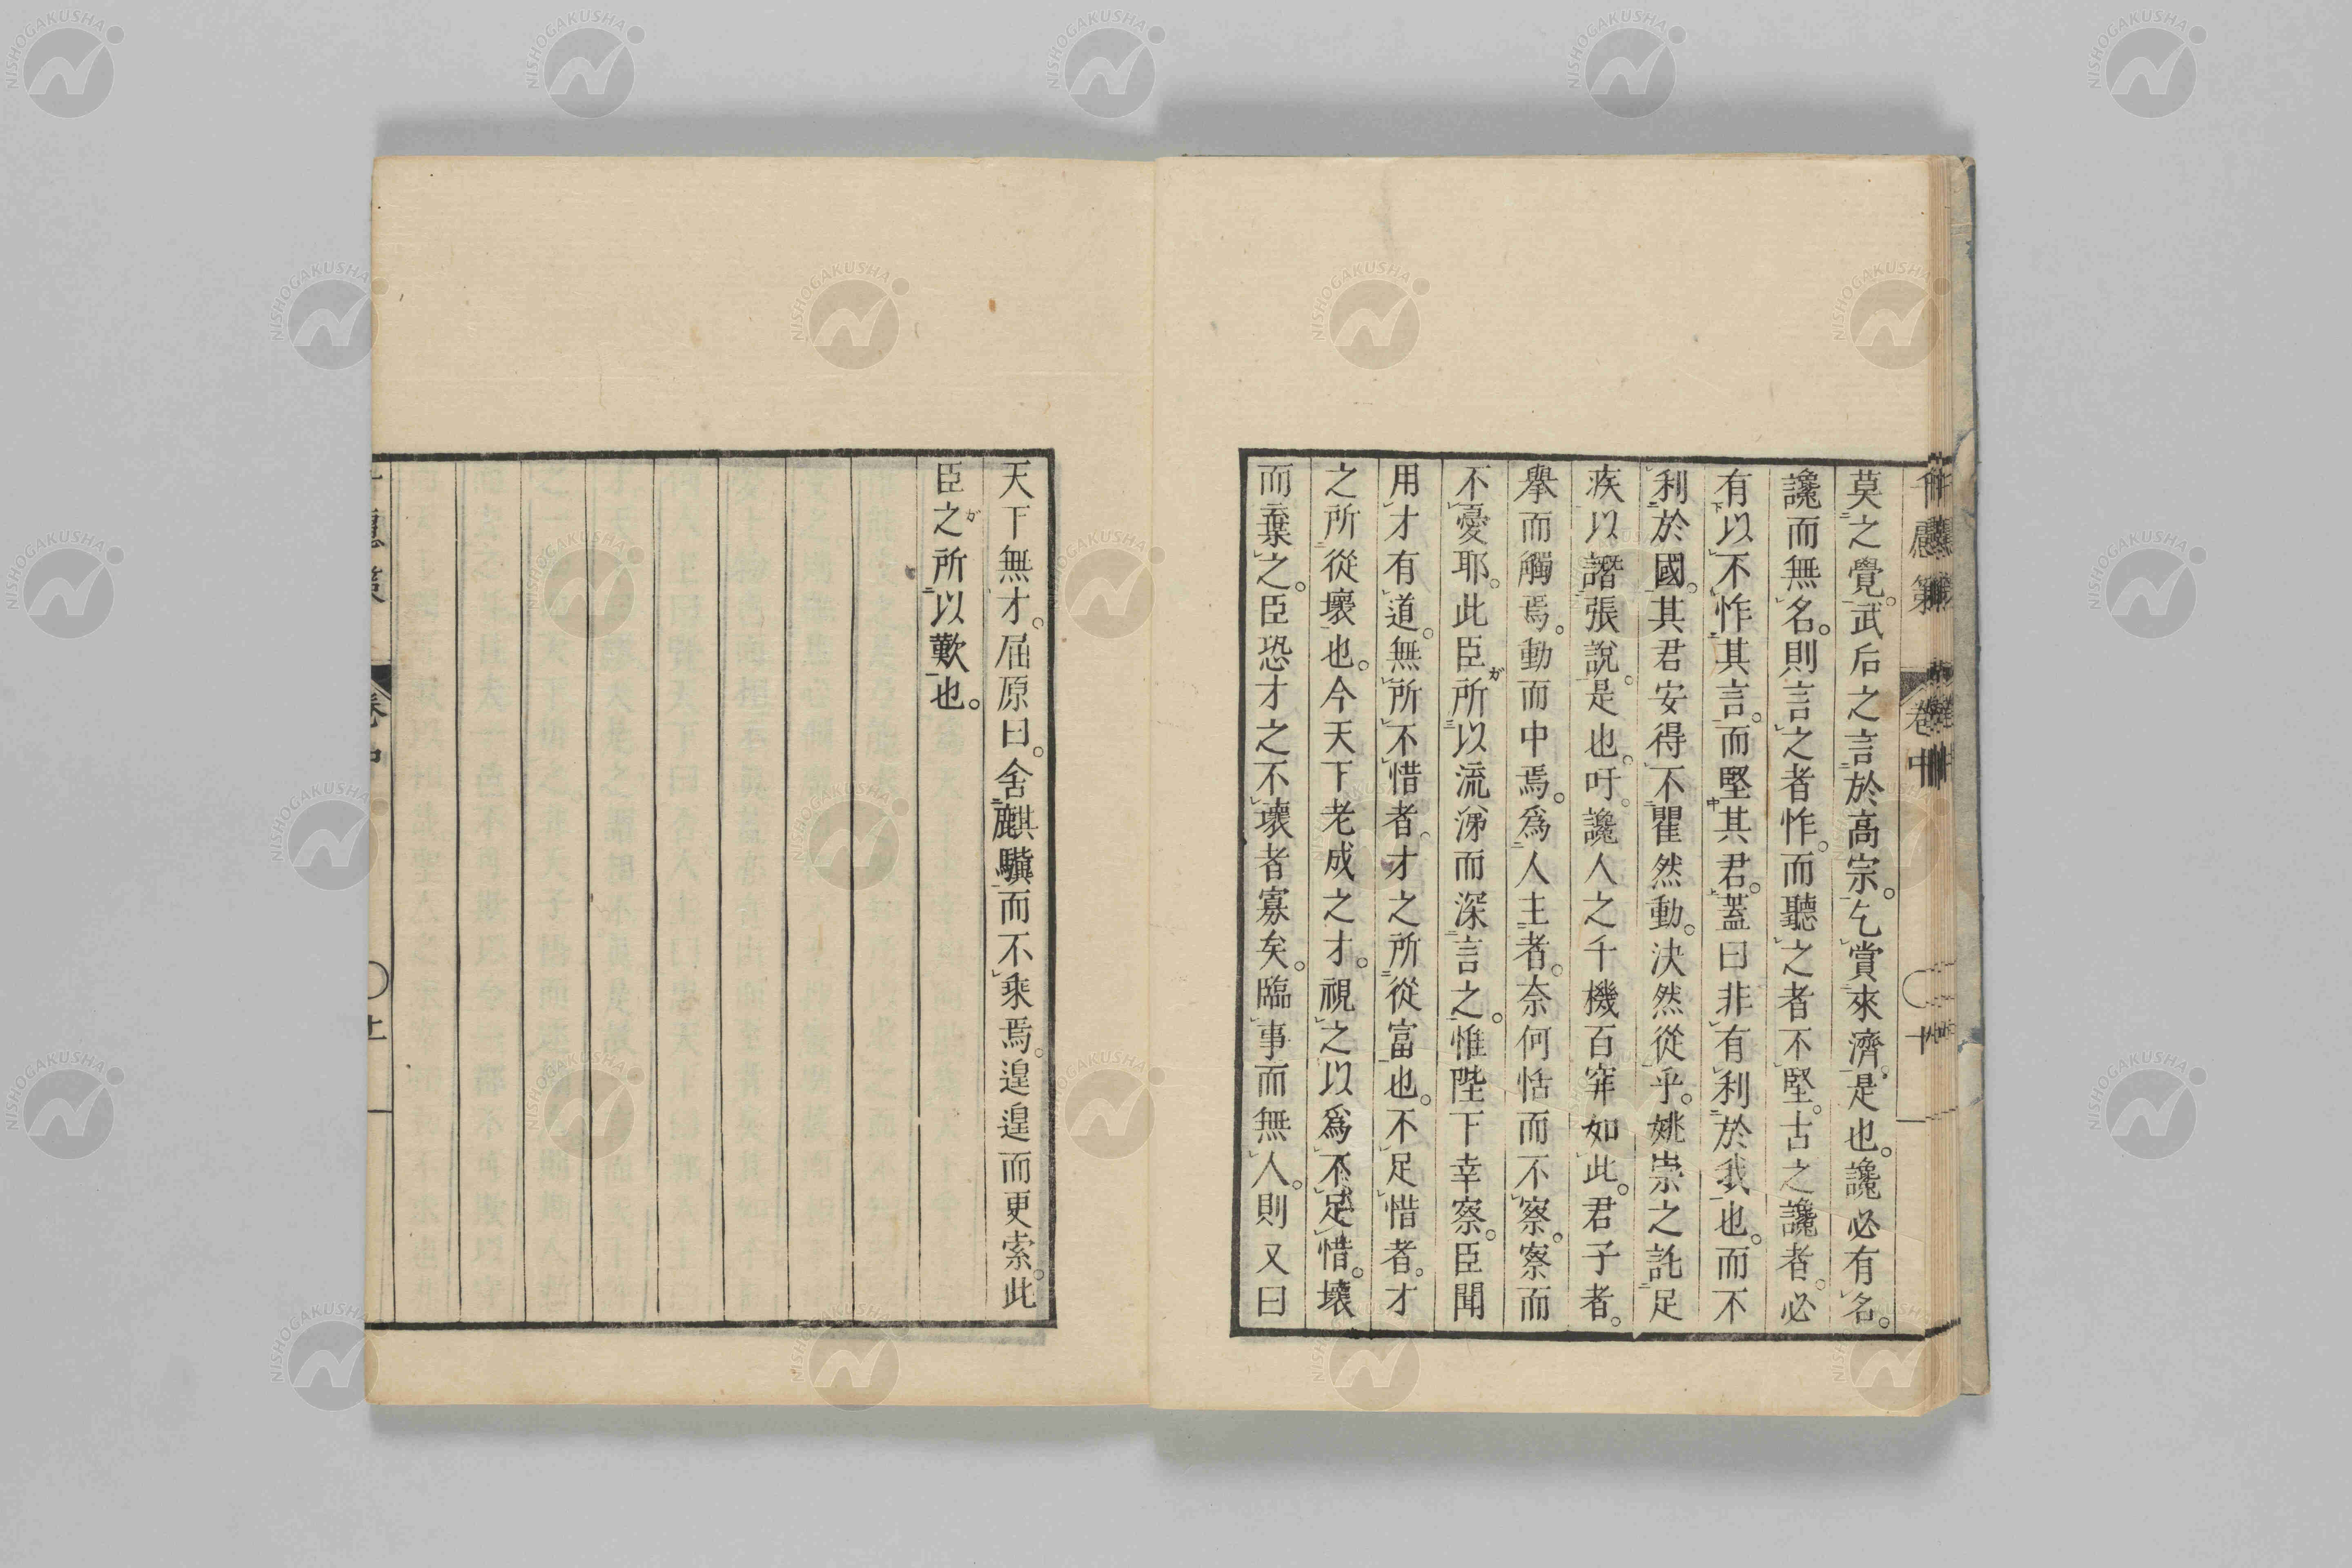 莫之覺。武后之言於高宗。乞賞來濟。是也。讒必有名。
讒而無名。則言之者怍。而聽之者不堅。古之讒者。必
有以不怍其言。而堅其君。蓋曰非有利於我也。而不
利於國。其君安得不瞿然動。決然從乎。姚崇之託足
疾以譖張說。是也。吁。讒人之千機百穽如此。君子者。
舉而觸焉。動而中焉。爲人主者。奈何恬而不察。察而
不憂耶。此臣ガ所以流涕而深言之。惟陛下幸察。臣聞
用才有道。無所不惜者。才之所從富也。不足惜者。才
之所從壞也。今天下老成之才。視之以爲不足惜。壞
而棄之。臣恐才之不壞者寡矣。臨事而無人。則又曰
天下無才。屈原曰。舍麒驥而不乘焉。遑遑而更索。此
臣之ガ所以歎也。
卷中
NISHOGAKUSHA